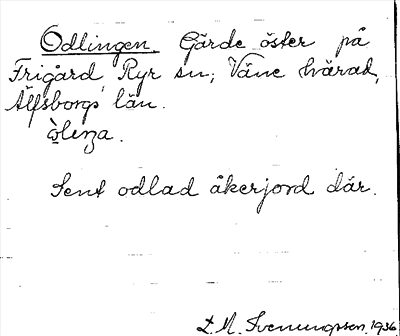 Odlingen. Gärde öster på
Frigård, Ryr sn; Väne härad,
Älfsborgs län.
Sent odlad åkerjord där.
L. M. Svenungsson, 1936